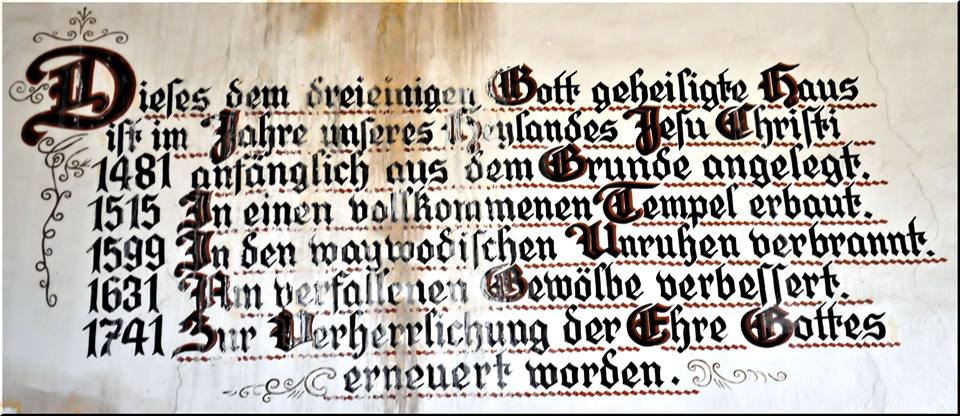 Dieſes dem dreieinigen Gott geheiligte Haus
iſt im Jahre unſeres Heylandes Jeſu Chriſti
1481 anfänglich aus dem Grunde angelegt.
1515 In einen vollkommenen Tempel erbaut.
1599 In den waywodiſchen Unruhen verbrannt.
1631 Am verfallenen Gewölbe verbeſſert.
1741 Zur Verherrlichung der Ehre Gottes
erneuert worden.